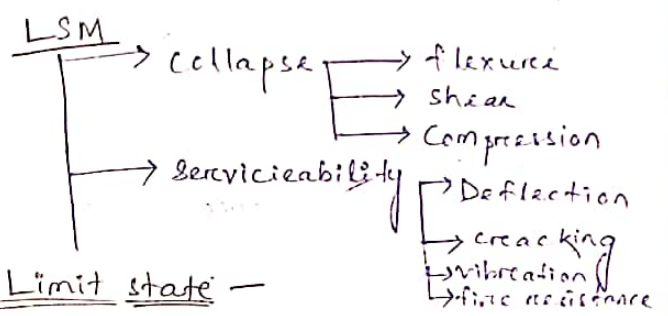 LSM
Collapse
flexurce
Shear
Compression
Servicieability
Deflection
creacking
vibreation
fire resistance
Limit state -